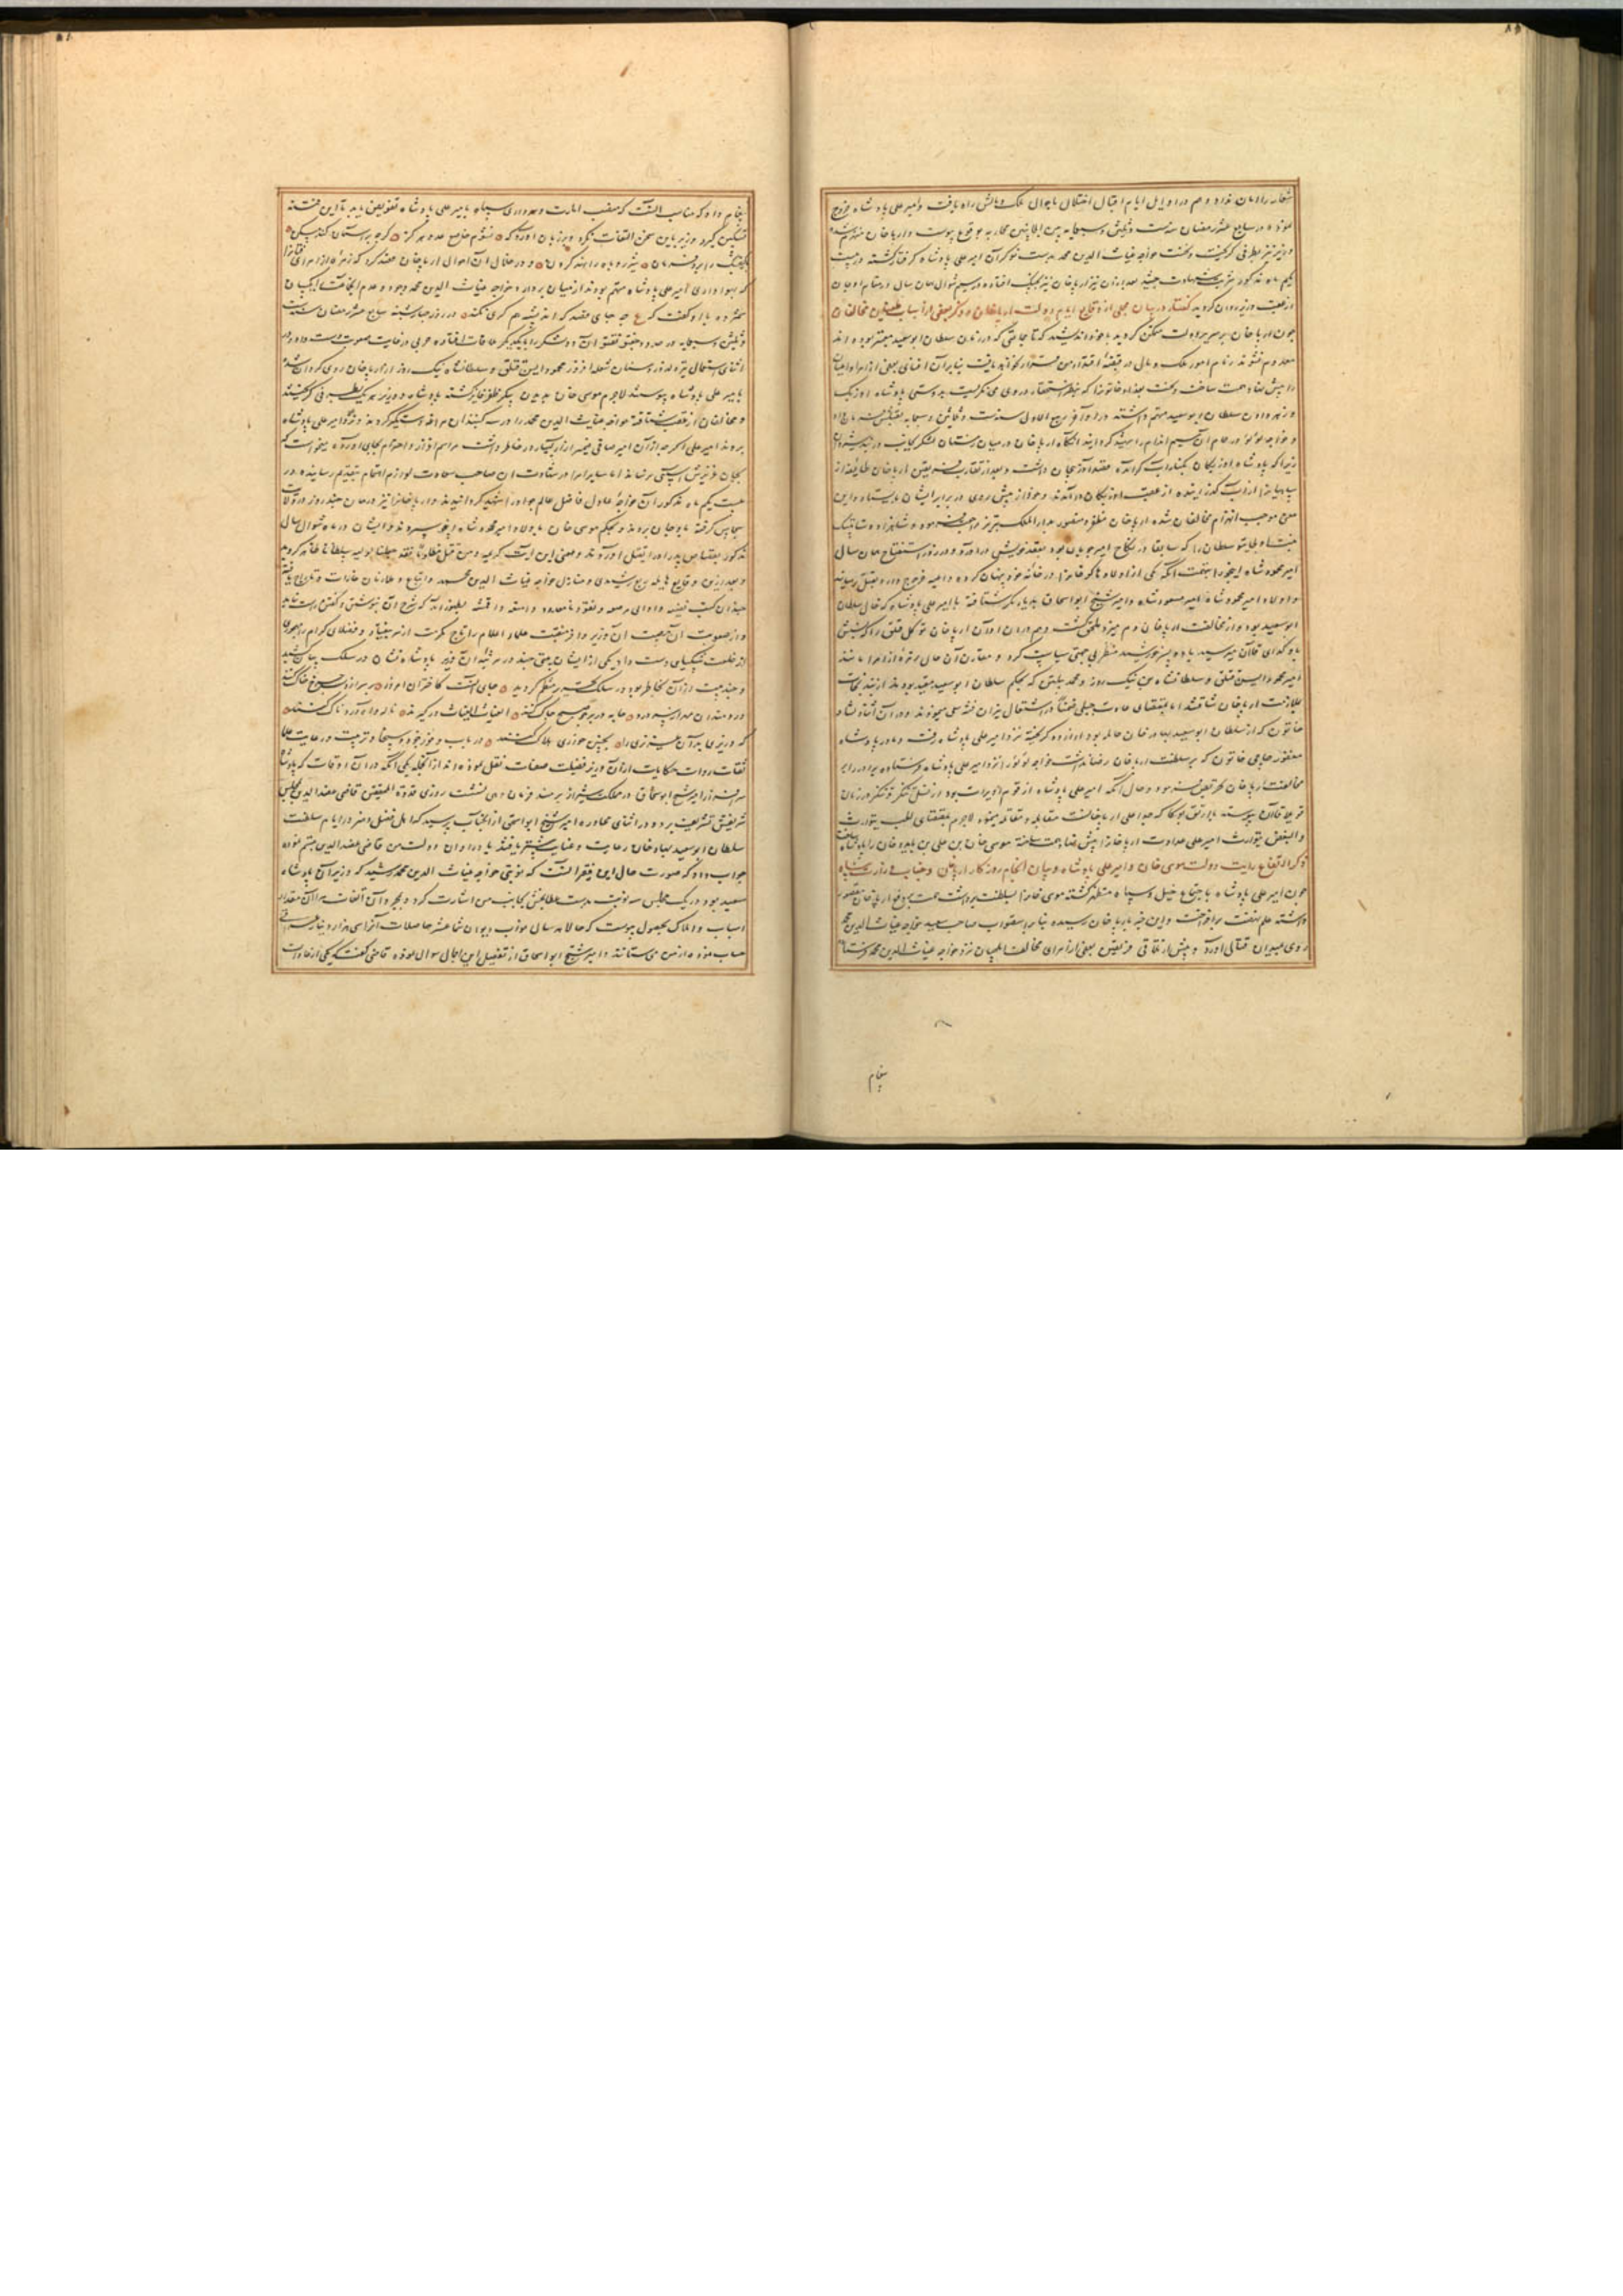 شعار را امان نداد و هم در اوایل ایام اقبال اختلال باحوال ملک و مالش راه یافت و امیر علی پادشاه خروج
نموده در سابع عشر رمضان سنه ست و ثلثین و سبعمایه بین الجانبین محاربه بوقوع پیوست و ارپا خان منهزم شده
و وزیر نیز بطرفی گریخت و خواجه غیاث الدین محمد بدست نوکران امیر علی پادشاه گرفتار گشته در بیست
یکم ماه مذکور شربت شهادت چشید بعد از آن نیز ارپا خان بچنگ افتاده در سیم شوال همان سال در مقام اوجان
از عقب وزیر روان گردید گفتار در بیان مجملی از وقایع ایام دولت ارپا خان و ذکر بعضی از اسباب مخالفان
چون ارپا خان بر سریر دولت متمکن گردید با خود اندیشید که تا جماعتی که در زمان سلطان ابوسعید معتبر بودند
معدوم نشوند زمام امور ملک و مال در قبضه اقتدار من قرار نخواهد یافت بنابر آن افنای بعضی از امرا و اعیان
را پیش نهاد همت ساخت و نخست بغداد خاتون را که بنظر استحقار در وی می نگریست بدوستی پادشاه اوزبک
و زهر دادن سلطان ابوسعید متهم داشته در اواخر ربیع الاول سنه ست و ثلثین و سبعمایه بقتلش فرمان داد
و خواجه لؤلؤ در حمام آن سیم اندام را شهید گردانید آنگاه ارپا خان در میان زمستان لشکر بجانب دربند شروان
زیرا که پادشاه اوزبکان بکنار آب کر آمده قصد آذربایجان داشت و بعد از تقارب فریقین ارپا خان طایفه از
سپاه را از آب گذرانیده از عقب اوزبکان درآمدند و خود از پیش روی در برابر ایشان بایستاد و این
معنی موجب انهزام مخالفان شده ارپا خان مظفر و منصور بدار الملک تبریز مراجعت نمود و شاهزاده ساتی بیک
بنت اولجایتو سلطان را که سابقا در نکاح امیر چوپان بود بعقد خویش درآورد و در روز استفتاح همان سال
امیر محمود شاه اینجو را بتهمت آنکه یکی از اولاد هلاکو خان را در خانه خود پنهان کرده داعیه خروج دارد بقتل رسانید
و اولاد امیر محمود شاه امیر مسعود شاه و امیر شیخ ابو اسحاق بدیار بکر شتافته با امیر علی پادشاه که خال سلطان
ابوسعید بود و از مخالفت ارپا خان دم میزد ملحق گشت و هم در آن اوان ارپا خان توکل قتلغ را که نسبش
باوکدای قاآن میرسید با دو پسر خورشید منظر بی جهتی سیاست کرد و مقارن آن حال برخی از امرا مانند
امیر محمود ایسن قتلغ و سلطانشاه بن نیک روز و محمد پیلتن که بحکم سلطان ابوسعید مقید بودند از بند نجات
بملازمت ارپا خان شتافتند اما بمقتضای عادت جبلی خفیةً در اشتعال نیران فتنه سعی مینمودند و در آن اثنا دلشاد
خاتون که از سلطان ابوسعید بهادر خان حامله بود از اردو گریخته نزد امیر علی پادشاه رفت و مادر پادشاه
مغفور حاجی خاتون که بر سلطنت ارپا خان رضا نداشت خواجه لؤلؤ را نزد امیر علی پادشاه فرستاده برادر را بر
مخالفت ارپا خان تحریض نمود و حال آنکه امیر علی پادشاه از قوم اویرات بود
و البغض یتوارث امیر علی عداوت ارپا خان را پیش نهاد همت ساخته موسی خان بن علی بن بایدو خان را پادشاه ساخت
ذکر ارتفاع رایت دولت موسی خان و امیر علی پادشاه و بیان انجام روزگار ارپا خان و جناب وزارت پناه
چون امیر علی پادشاه باجتماع خیل و سپاه مستظهر گشته موسی خان را بسلطنت برداشت همت بر دفع ارپا خان مقصور
داشته علم نهضت برافراخت و این خبر بارپا خان رسیده بنابر استصواب صاحب سعید خواجه غیاث الدین محمد
روی بمیدان قتال آورد و پیش از تلاقی فریقین بعضی از امرای مخالف ایلچیان نزد خواجه غیاث الدین محمد فرستاده
پیغام
پیغام داد که مناسب آنست که منصب امارت و سرداری سپاه بامیر علی پادشاه تفویض یابد تا این فتنه
تسکین گیرد وزیر باین سخن التفات نکرد و بر زبان آورد که نشوم خاضع عدو هرگز گرچه بر آسمان کند مسکن
و در خلال آن احوال ارپا خان قصد کرد که زمره از امرا را
که بهواداری امیر علی پادشاه متهم بودند از میان بردارد خواجه غیاث الدین محمد وجود و عدم آنجماعت را یکسان
شمرده با او گفت که ع چه جای قصد که اندیشه هم کری نکند در روز چهارشنبه سابع عشر رمضان سنه ست
و ثلثین و سبعمایه در حدود جغتو تغتو آن دو لشکر را بایکدیگر ملاقات افتاده حربی در غایت صعوبت دست داد و در
اثنای استعمال تیر و نیزه و سنان شعله افروز محمود ایسن قتلغ و سلطانشاه نیک روز از ارپا خان روی گردان شده
بامیر علی پادشاه پیوستند لاجرم موسی خان بدیدن پیکر ظفر فایز گشته پادشاه و وزیر هر یک بطرفی گریختند
و مخالفان از عقب شتافته خواجه غیاث الدین محمد را در سه گنبدان مراغه دستگیر کردند و نزد امیر علی پادشاه
بردند
بیست یکم ماه مذکور آن خواجه عادل فاضل عالم جواد را شهید گردانیدند و ارپا خان را نیز در همان چند روز در ولایت
سجاس گرفته باوجان بردند و بحکم موسی خان باولاد امیر محمود شاه اینجو سپردند و ایشان در ماه شوال سال
مذکور بقصاص پدر او را بقتل آوردند و معنی این آیت کریمه و من قتل مظلوما فقد جعلنا لولیه سلطانا ظاهر گردید
و بعد از این وقایع هایله ربع رشیدی و منازل خواجه غیاث الدین محمد و اتباع و ملازمان غارت و تاراج یافته
چندان کتب نفیسه و اوانی مرصعه و نقود نامعدود و امتعه و اقمشه بظهور آمد که شرح آن بنوشتن و گفتن راست نیاید
و از صعوبت آن مصیبت آن وزیر وافر منقبت علماء اعلام را
از خلعت شکیبایی دست داد یکی از ایشان بیتی چند در مرثیه آن وزیر پادشاه نشان در سلک بیان کشید
و چند بیت از آن بخاطر بود در سلک تحریر منتظم گردید جای آنست کاختران امروز
جامه در بر چو صبح چاک کنند الغیاث الغیاث درگیرند ناله و آه دردناک کنند
که وزیری بدان عزیزی را بچنین خواری هلاک کنند در باب وفور جود و سخا و تربیت و رعایت علما
ثقات روات حکایات از آن وزیر فضیلت صفات نقل نموده اند از آنجمله یکی آنکه در آن اوقات که پادشاه
سرافراز امیر شیخ ابواسحاق در مملکت شیراز بر مسند فرمان دهی نشست روزی قدوة المحققین قاضی عضد الدین بمجلس
شریفش تشریف برده و در اثنای محاوره امیر شیخ ابواسحق از آنجناب پرسید که اهل فضل و هنر در ایام سلطنت
سلطان ابوسعید بهادر خان رعایت و عنایت بیشتر یافتند یا در اوان دولت من قاضی عضد الدین تبسم نموده
جواب داد که صورت حال این فقیر آنست که نوبتی خواجه غیاث الدین محمد رشید که وزیر آن پادشاه
سعید بود در یک مجلس سه نوبت بدست عطابخش بجانب من اشارت کرد و بمجرد آن التفات مرا آن مقدار
اسباب و املاک بحصول پیوست که حالا هر سال نواب دیوان شما عشر حاصلات آنرا سی هزار دینار
حساب نموده از من می ستانند و امیر شیخ ابو اسحاق از تفصیل این اجمال سوال نموده قاضی گفت که یکی از عادات